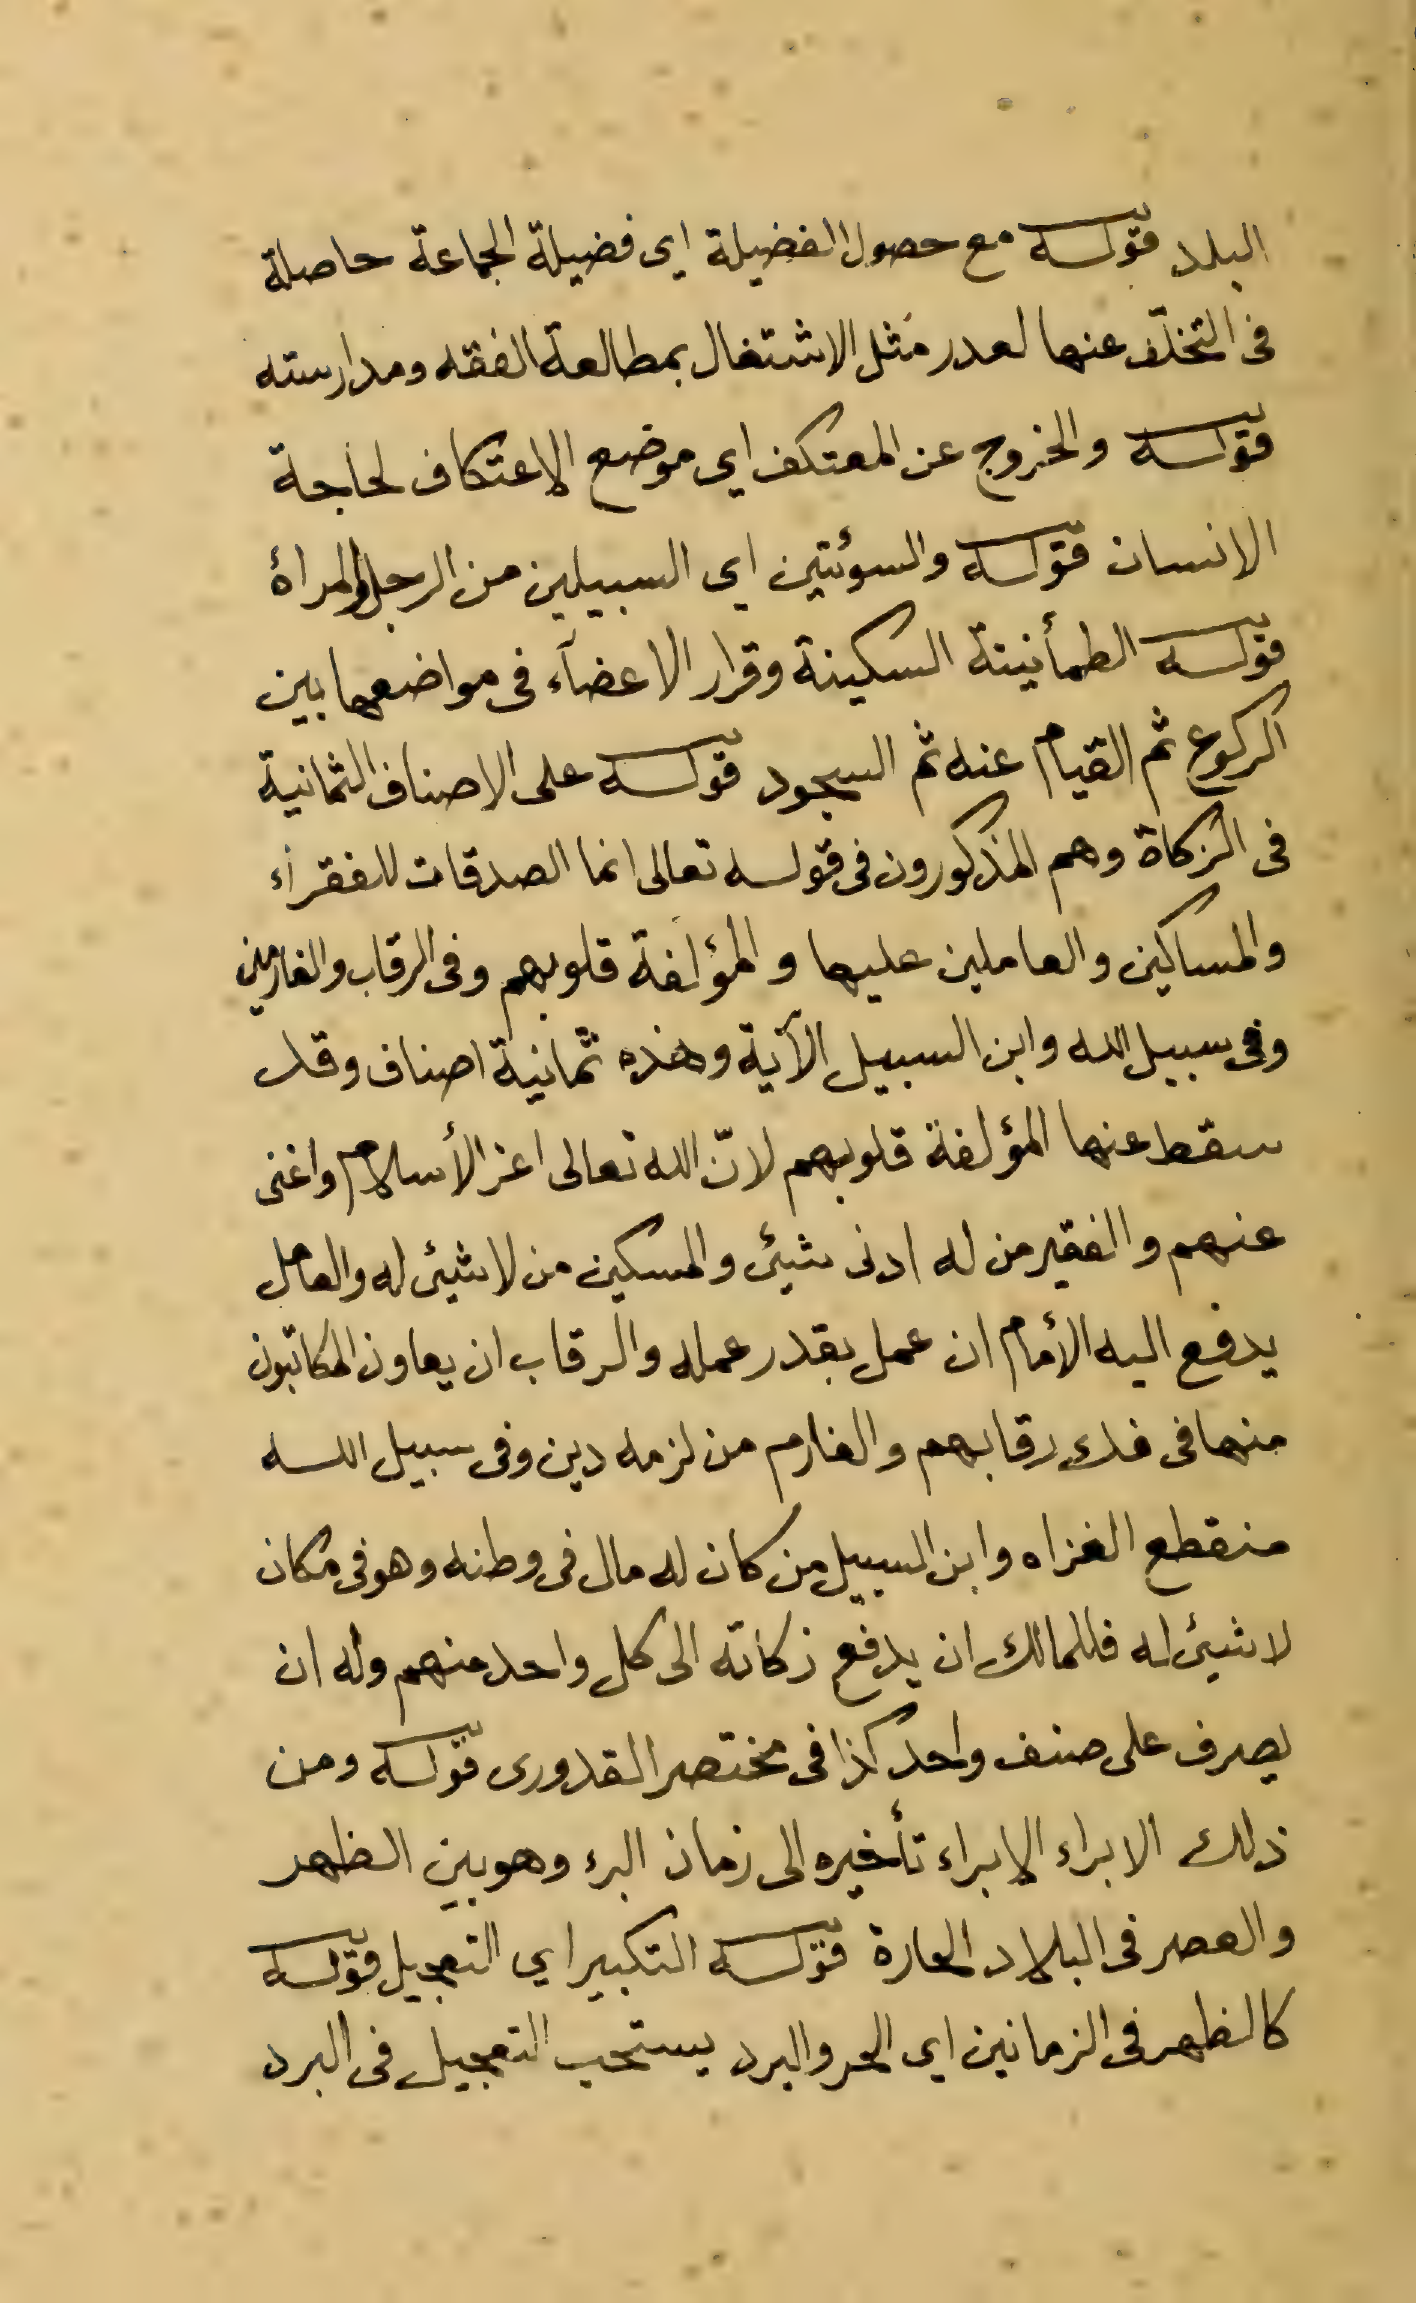 البلد قوله مع حصول الفضيلة اى فضيلة الجماعة حاصلة
فى التخلّف عنها لعدر مثل الاشتغال بمطالعة الفقه ومدارسته
قوله والخروج عن المعتكف اى موضع الاعتكاف لحاجة
الانسان قوله والسوئتين اى السبيلين من الرجل والمرأة
قوله الطمأنينة السكينة وقرار الاعضآء فى مواضعها بين
الركوع ثم القيام عنه ثم السجود قوله على الاصناف الثمانية
فى الزكاة وهم المذكورون فى قوله تعالى انما الصدقات للفقرأء
والمساكين والعاملين عليها والمؤلفة قلوبهم وفى الرقاب والغارمين
وفى سبيل الله وابن السبيل الآية وهذه ثمانية اصناف وقد
سقط عنها المؤلفة قلوبهم لانّ الله تعالى اعز الأسلام واغنى
عنهم والفقير من له ادنى شيئ والمسكين من لا شيئ له والعامل
يدفع اليه الأمام ان عمل بقدر عمله والرقاب ان يعاون المكاتبون
منها فى فك رقابهم والغارم من لزمه دين وفى سبيل الله
منقطع الغزاه وابن السبيل من كان له مال فى وطنه وهو فى مكان
لا شيئ له فللمالك ان يدفع زكاته الى كل واحد منهم وله ان
يصرف على صنف واحد كذا فى مختصر القدورى قوله ومن
ذلك الابراء الابراء تأخيره الى زمان البرء وهو بين الظهر
والعصر فى البلاد الحارة قوله التكبير اي التعجيل قوله
كالظهر فى الزمانين اى الحر والبرد يستحب التعجيل فى البرد